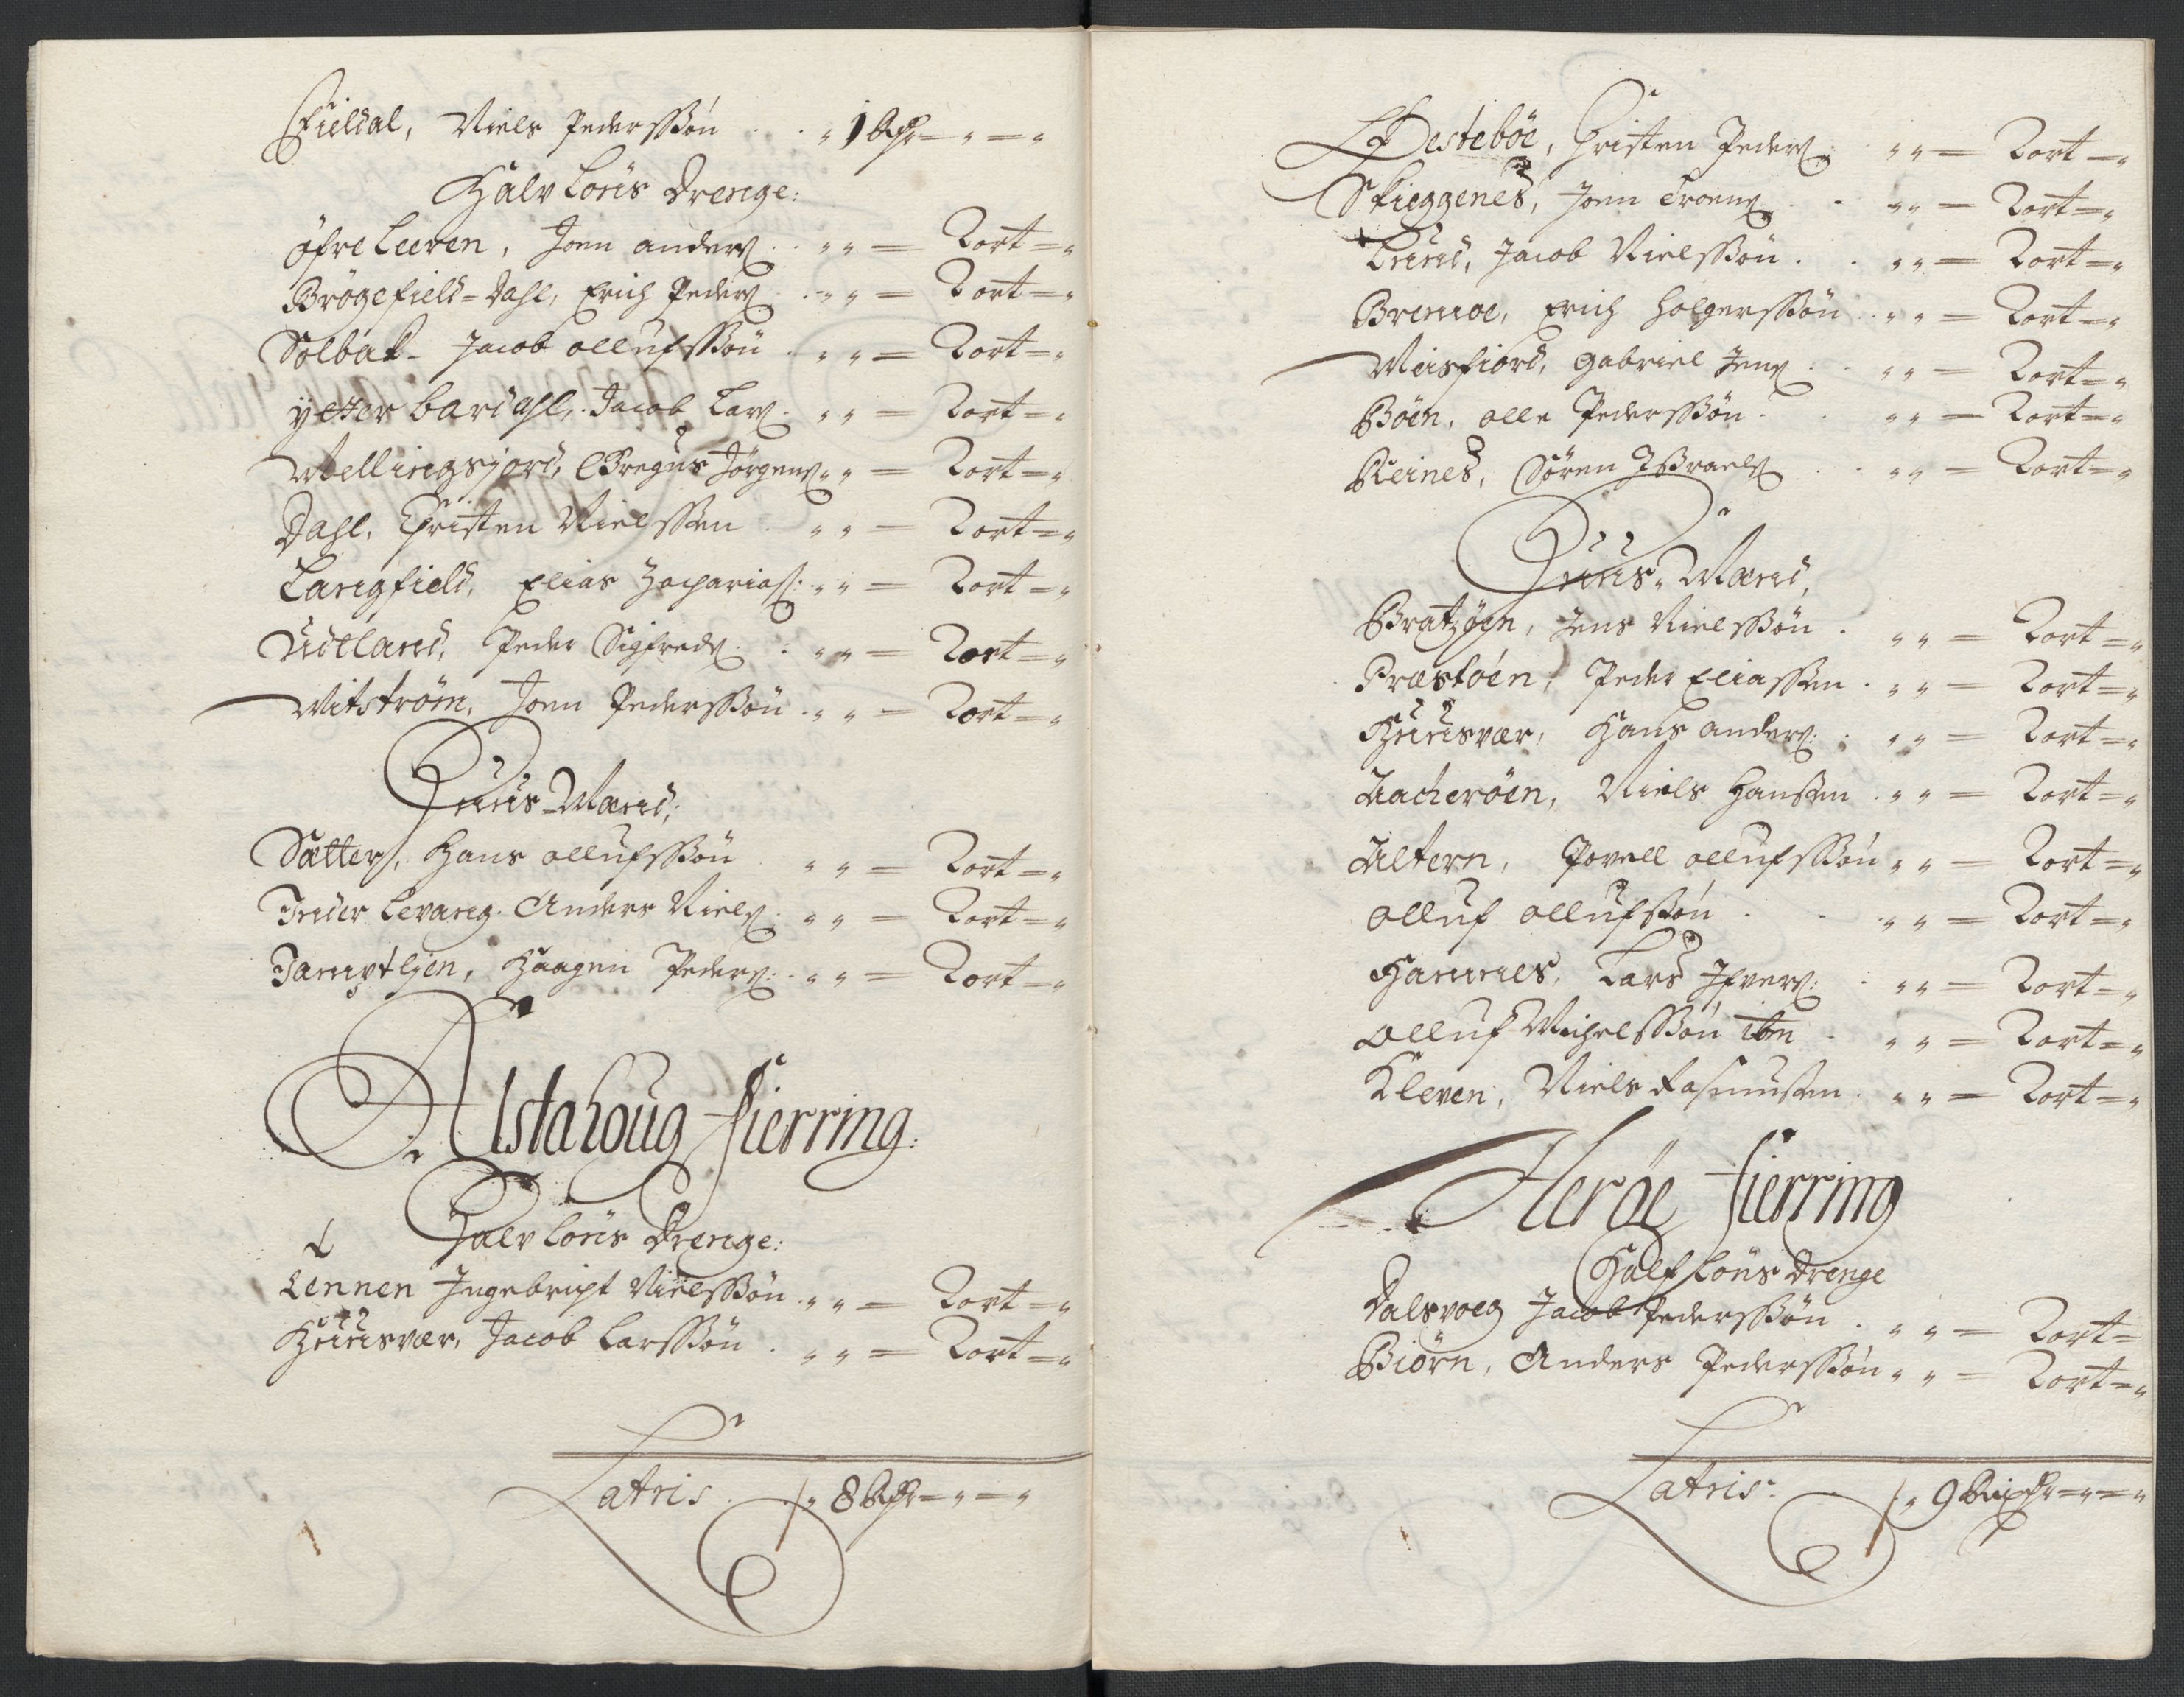 Fieldal, Niels Pederssøn . . „ 1 Rdr – „ – „
Halv Løns Drenge:
Øfre Leeren, Joen anders: . „ „ – 2 ort – „
Brøgefield-Dahl, Erich Peders: . „ „ – 2 ort – „
Solbak – Jacob ollufssøn . „ „ – 2 ort – „
ÿtter bardahl, Jacob Lars: . „ „ – 2 ort – „
Mellingsjord, Gregus Jørgens: „ „ – 2 ort – „
Dahl, Christen Nielssen . „ „ – 2 ort – „
Langfield, Elias Zacharias: . „ „ – 2 ort – „
Udtland, Peder Sigfreds: . „ „ – 2 ort – „
Mitstrøm, Joen Pederssøn . „ „ – 2 ort – „
Huus-Mænd;
Sætter, Hans ollufssøn . „ „ – 2 ort – „
Inder Levang. Anders Niels: . „ „ – 2 ort – „
Jamptljen, Haagen Peders: . „ „ – 2 ort – „
Alstahoug fierring.
Halv Løns Drenge:
Lennen Ingebricht Nielssøn . „ „ – 2 ort – „
Huusvær, Jacob Larssøn . „ „ – 2 ort – „
Latris . /: „ 8 Rdr – „ – „
Westebøe, Christen Peders: „ „ – 2 ort – „
Skieggenes, Joen Troens: . „ „ – 2 ort – „
Lund, Jacob Nielssøn . . „ „ – 2 ort – „
Bremoe, Erich Holgerssøn . „ „ – 2 ort – „
Meisfiord, Gabriel Jens: . „ „ – 2 ort – „
Bøen, olle Pederssøn . . „ „ – 2 ort – „
Reines, Søren Issraels: . „ „ – 2 ort – „
Huus-Mænd,
Bratzøen, Jens Nielssøn . „ „ – 2 ort – „
Præstøen, Peder Eliassen . „ „ – 2 ort – „
Huusvær, Hans anders: . „ „ – 2 ort – „
Aacherøen, Niels Hanssen . „ „ – 2 ort – „
Altern, Povell ollufssøn „ „ – 2 ort – „
olluf ollufssøn . . „ „ – 2 ort – „
Hannes, Lars Ifvers: . „ „ – 2 ort – „
olluf Michelssøn ibm . „ „ – 2 ort – „
Kleven, Niels Rasmussen . „ „ – 2 ort – „
Herøe fierring
Half Løns Drenge
Dalsvoeg Jacob Pederssøn . „ „ – 2 ort –
Biørn, Anders Pederssøn „ „ – 2 ort – „
Latris . /: „ 9 Rixdr – „ – „